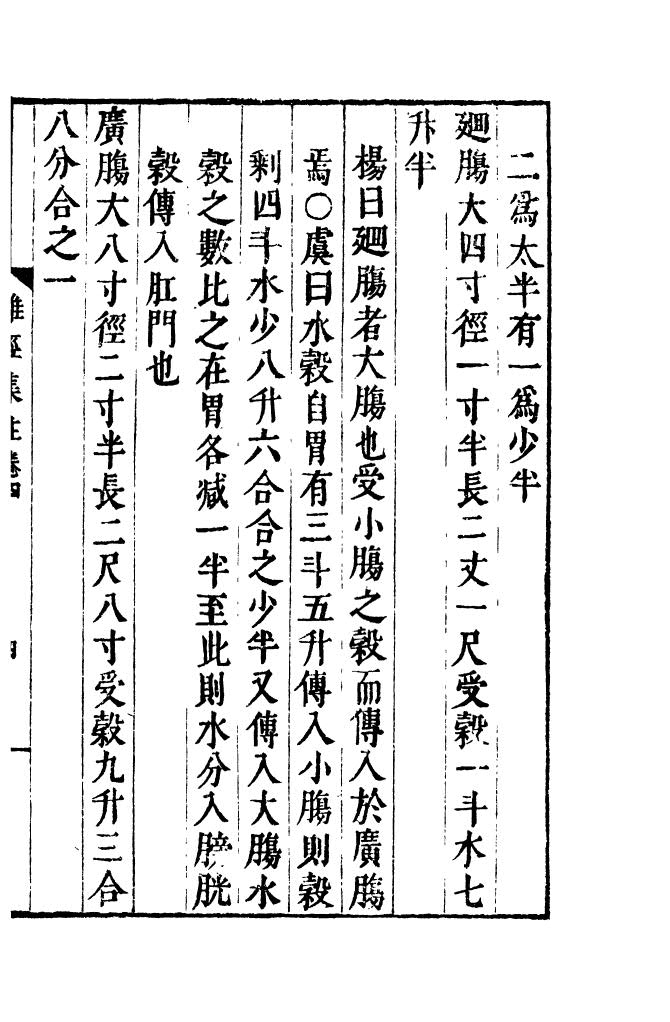 二爲太半有一爲少半
廽膓大四寸徑一寸半長二丈一尺受穀一斗水七
升半
楊曰廽膓者大膓也受小膓之穀而傳入於廣膓
焉○虞曰水穀自胃有三斗五升傳入小膓則穀
剩四斗水少八升六合合之少半又傳入大膓水
穀之數比之在胃各减一半至此則水分入膀胱
穀傳入肛門也
廣膓大八寸徑二寸半長二尺八寸受穀九升三合
八分合之一
難經集註卷四
四